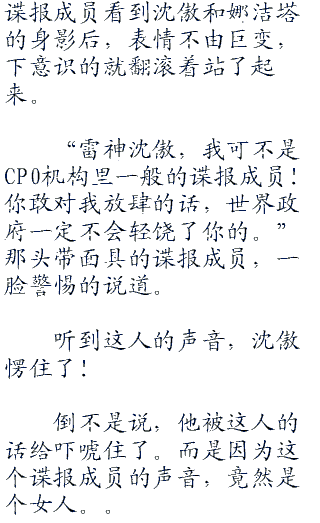 谍报成员看到沈傲和娜洁塔
的身影后，表情不由巨变，
下意识的就翻滚着站了起
来。
“雷神沈傲，我可不是
CPO机构里一般的谍报成员！
你敢对我放肆的话，世界政
府一定不会轻饶了你的。”
那头带面具的谍报成员，一
脸警惕的说道。
听到这人的声音，沈傲
愣住了！
倒不是说，他被这人的
话给吓唬住了。而是因为这
个谍报成员的声音，竟然是
个女人。。